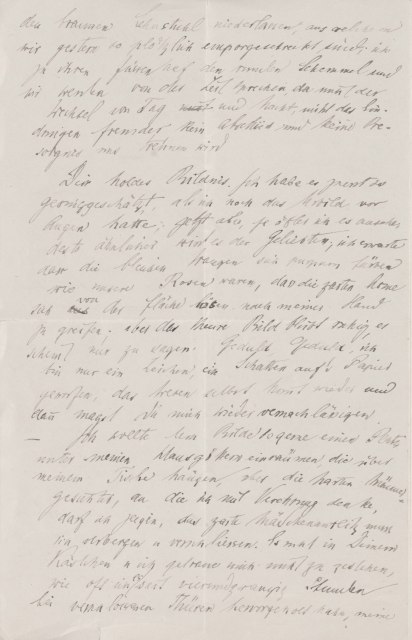 den braunen Lehnstuhl niederlassen, aus welchem
wir gestern so plötzlich emporgeschreckt sind; ich
zu ihren Füßen auf dem runden Schemmel und
wir werden von der Zeit sprechen da nur der
Wechsel von Tag und Nacht, nicht das Ein-
dringen fremder kein Abschied und keine Be-
sorgnis uns trennen wird
Dein holdes Bildnis. Ich habe es zuerst so
geringgeschätzt, als ich noch das Urbild vor
Augen hatte; jetzt aber, je öfter ich es ansehe
desto ähnlicher wird es der Geliebten; ich erwarte
daß die blauen Augen sich
wie unsere Rosen waren, daß die zarten Arme
sich von der Fläche heben, nach meiner Hand
zu greifen; aber das theure Bild bleibt ruhig es
scheint nur zu sagen: Geduld, Geduld, ich
bin nur ein Zeichen, ein Schatten aufs Papier
geworfen, das Wesen selbst kommt wieder und
dann magst du mich wieder vernachläßigen
— Ich wollte dem Bilde so gerne einen Platz
unter meinen Hausgöttern einräumen, die über
meinem Tische hängen; aber die harten Männer-
gesichter, an die ich mit Verehrung denke,
darf ich zeigen, das zarte Mädchenantlitz muß
ich verbergen u verschliesen. Es ruht in Deinem
Kästchen u ich getraue mich nicht zu gestehen,
wie oft in diesen vierundzwanzig Stunden
bei verschlossenen Thüren hervorgeholt habe, meine